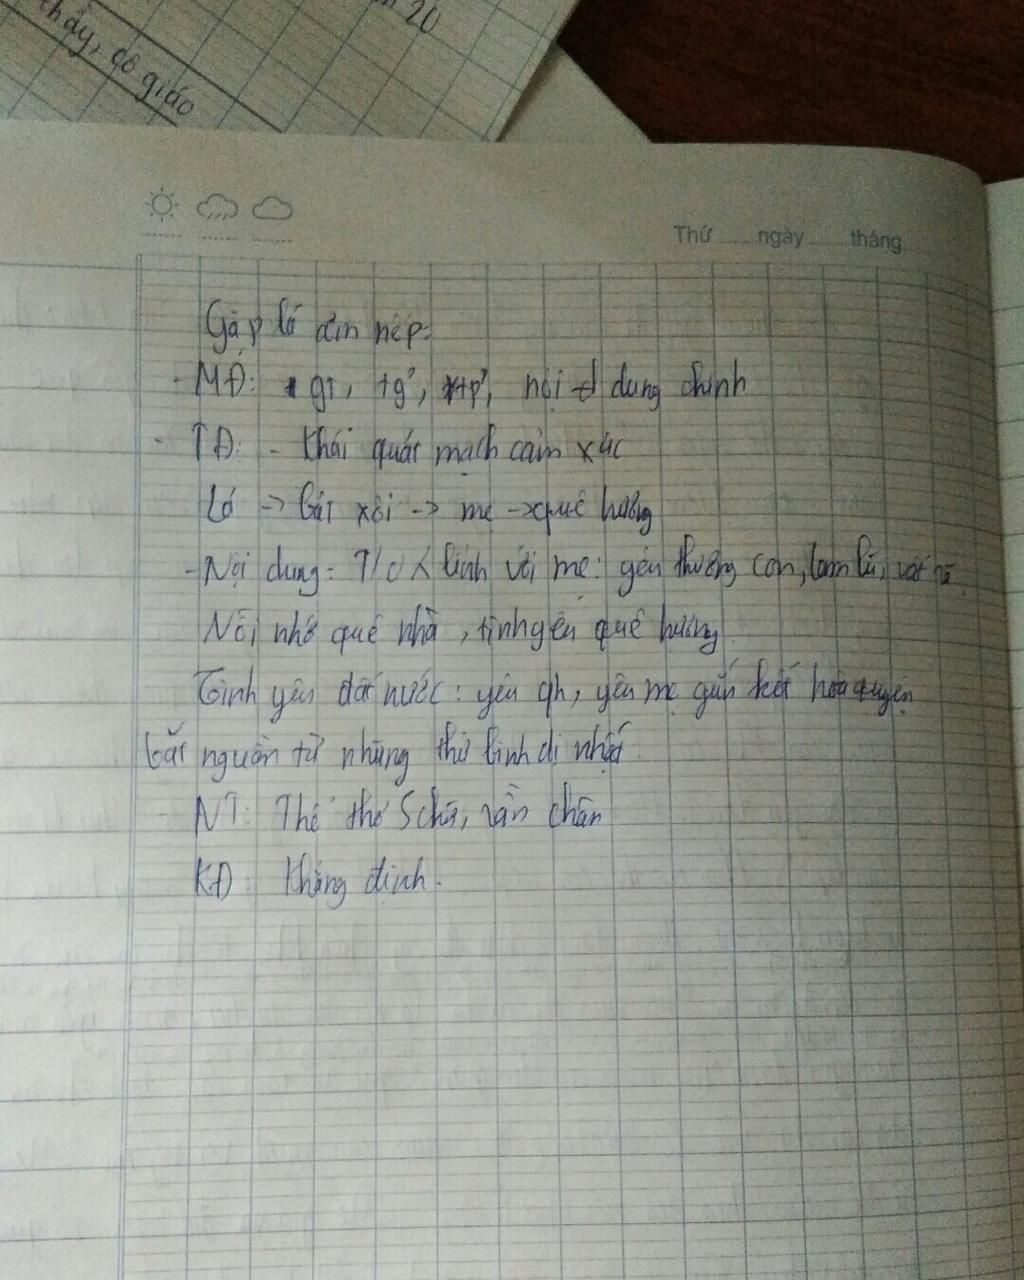 20
thầy, cô giáo
Thứ ngày tháng
Gặp lá cơm nếp:
- MĐ: gt, tg', tp', nội dung chính
- TĐ: - Khái quát mạch cảm xúc
Lá -> bát xôi -> mẹ -> quê hương
- Nội dung: T/c lính với mẹ: yêu thương con, lam lũ, vất vả
Nỗi nhớ quê nhà, tình yêu quê hương
Tình yêu đất nước: yêu qh, yêu mẹ gắn kết hòa quyện
bắt nguồn từ những thứ bình dị nhất.
NT: Thể thơ 5 chữ, vần chân
KĐ: Khẳng định.